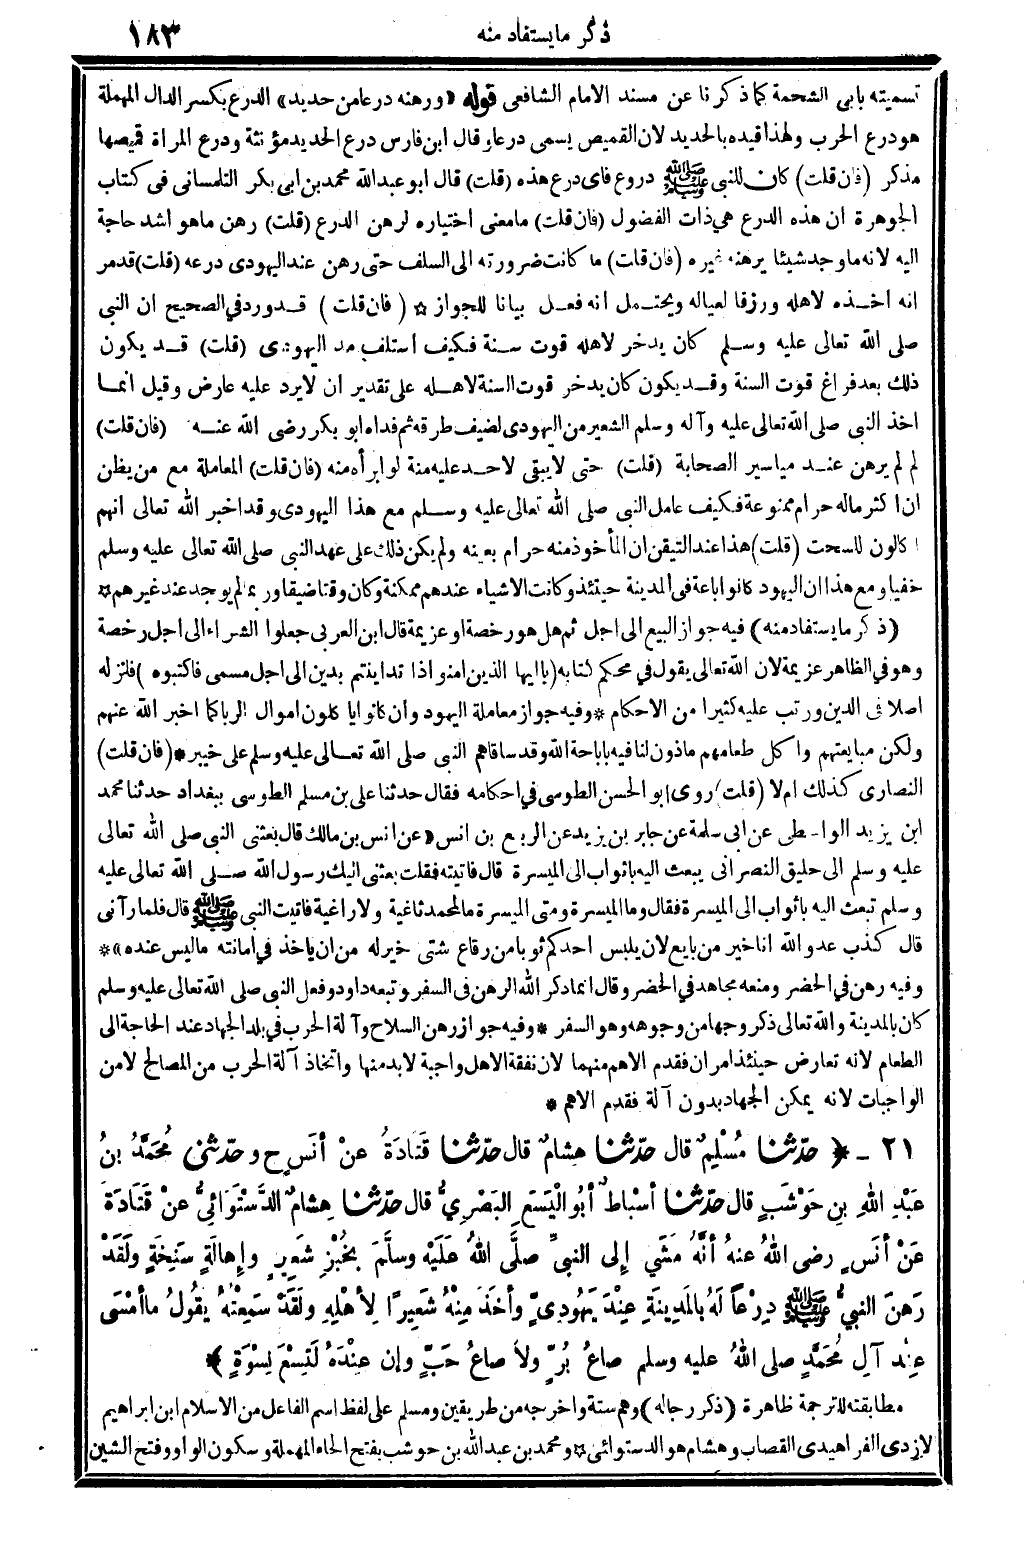 ذكر ما يستفاد منه ١٨٣
تسميته بابى الشحمة كما ذكرنا عن مسند الامام الشافعى قوله «ورهنه درعا من حديد» الدرع بكسر الدال المهملة
هو درع الحرب ولهذا قيده بالحديد لان القميص يسمى درعا وقال ابن فارس درع الحديد مؤنثة ودرع المراة قميصها
مذكر (فان قلت) كان للنبى ﷺ دروع فاى درع هذه (قلت) قال ابو عبد الله محمد بن ابى بكر التلمسانى فى كتاب
الجوهرة ان هذه الدرع هي ذات الفضول (فان قلت) ما معنى اختياره لرهن الدرع (قلت) رهن ما هو اشد حاجة
اليه لانه ما وجد شيئا يرهنه غيره (فان قلت) ما كانت ضرورته الى السلف حتى رهن عند اليهودى درعه (قلت) قد مر
انه اخذه لاهله ورزقا لعياله ويحتمل انه فعل بيانا للجواز ☆ (فان قلت) قد ورد في الصحيح ان النبى
صلى الله تعالى عليه وسلم كان يدخر لاهله قوت سنة فكيف أستلف من اليهودى (قلت) قد يكون
ذلك بعد فراغ قوت السنة وقد يكون كان يدخر قوت السنة لاهله على تقدير ان لا يرد عليه عارض وقيل انما
اخذ النبى صلى الله تعالى عليه وآله وسلم الشعير من اليهودى لضيف طرقه ثم فداه ابو بكر رضى الله عنه (فان قلت)
لم لم يرهن عند مياسير الصحابة (قلت) حتى لا يبقى لاحد عليه منة لو ابرأه منه (فان قلت) المعاملة مع من يظن
ان اكثر ماله حرام ممنوعة فكيف عامل النبى صلى الله تعالى عليه وسلم مع هذا اليهودى وقد اخبر الله تعالى انهم
اكالون للسحت (قلت) هذا عند التيقن ان المأخوذ منه حرام بعينه ولم يكن ذلك على عهد النبى صلى الله تعالى عليه وسلم
خفيا ومع هذا ان اليهود كانوا باعة فى المدينة حينئذ وكانت الاشياء عندهم ممكنة وكان وقتا ضيقا وربما لم يوجد عند غيرهم ☆
(ذكر ما يستفاد منه) فيه جواز البيع الى اجل ثم هل هو رخصة او عزيمة قال ابن العربى جعلوا الشراء الى اجل رخصة
وهو في الظاهر عزيمة لان الله تعالى يقول في محكم كتابه (يا ايها الذين امنوا اذا تداينتم بدين الى اجل مسمى فاكتبوه) فانزله
اصلا فى الدين ورتب عليه كثيرا من الاحكام * وفيه جواز معاملة اليهود وان كانوا ياكلون اموال الربا كما اخبر الله عنهم
ولكن مبايعتهم واكل طعامهم ماذون لنا فيه باباحة الله وقد ساقاهم النبى صلى الله تعالى عليه وسلم على خيبر * (فان قلت)
النصارى كذلك ام لا (قلت) روى ابو الحسن الطوسى في احكامه فقال حدثنا على بن مسلم الطوسى ببغداد حدثنا محمد
ابن يزيد الواسطى عن ابى سلمة عن جابر بن يزيد عن الربيع بن انس «عن انس بن مالك قال بعثنى النبى صلى الله تعالى
عليه وسلم الى حليق النصرانى يبعث اليه باثواب الى الميسرة قال فاتيته فقلت بعثنى اليك رسول الله صلى الله تعالى عليه
وسلم تبعث اليه باثواب الى الميسرة فقال وما الميسرة ومتى الميسرة ما لمحمد ثاغية ولا راغية فاتيت النبى ﷺ قال فلما رآنى
قال كذب عدو الله انا خير من بايع لان يلبس احدكم ثوبا من رقاع شتى خير له من ان ياخذ في امانته ما ليس عنده» *
وفيه رهن في الحضر ومنعه مجاهد في الحضر وقال انما ذكر الله الرهن فى السفر وتبعه داود وفعل النبى صلى الله تعالى عليه وسلم
كان بالمدينة والله تعالى ذكر وجها من وجوهه وهو السفر * وفيه جواز رهن السلاح وآلة الحرب في بلد الجهاد عند الحاجة الى
الطعام لانه تعارض حينئذ امران فقدم الاهم منهما لان نفقة الاهل واجبة لابد منها واتخاذ آلة الحرب من المصالح لا من
الواجبات لانه يمكن الجهاد بدون آلة فقدم الاهم *
٢١ - ﴿ حدّثنا مُسْلِمٌ قال حدّثنا هِشامٌ قال حدّثنا قَتادَةُ عنْ أنَسٍ ح وحدّثنى مُحَمَّدُ بنُ
عَبْدِ اللهِ بنِ حَوْشَبٍ قال حدّثنا أسْباطٌ أبُو اليَسَعِ البَصْرِيُّ قال حدّثنا هِشامٌ الدَّسْتَوَائِيُّ عنْ قَتَادَةَ
عَنْ أنَسٍ رضى اللهُ عنهُ أنَّهُ مَشَي إلى النبيِّ صلَّى اللهُ عَلَيْه وسلَّمَ بخُبْزِ شَعِيرٍ وإهالَةٍ سَنِخَةٍ ولَقَدْ
رَهنَ النبيُّ ﷺ دِرْعاً لَهُ بالمَدِينَةِ عِنْدَ يَهُودِيٍّ وأخَذَ مِنْهُ شَعِيرًا لِأهْلِهِ ولَقَدْ سَمِعْتُهُ يقُولُ ما أمْسَى
عِنْدَ آلِ مُحَمَّدٍ صلى اللهُ عليه وسلم صاعُ بُرٍّ ولاَ صاعُ حَبٍّ وإن عِنْدَهُ لَتِسْعَ نِسْوَةٍ ﴾
مطابقته للترجمة ظاهرة (ذكر رجاله) وهم ستة واخرجه من طريقين ومسلم على لفظ اسم الفاعل من الاسلام ابن ابراهيم
لازدى الفراهيدى القصاب وهشام هو الدستوائى ☆ ومحمد بن عبد الله بن حوشب بفتح الحاء المهملة وسكون الواو وفتح الشين